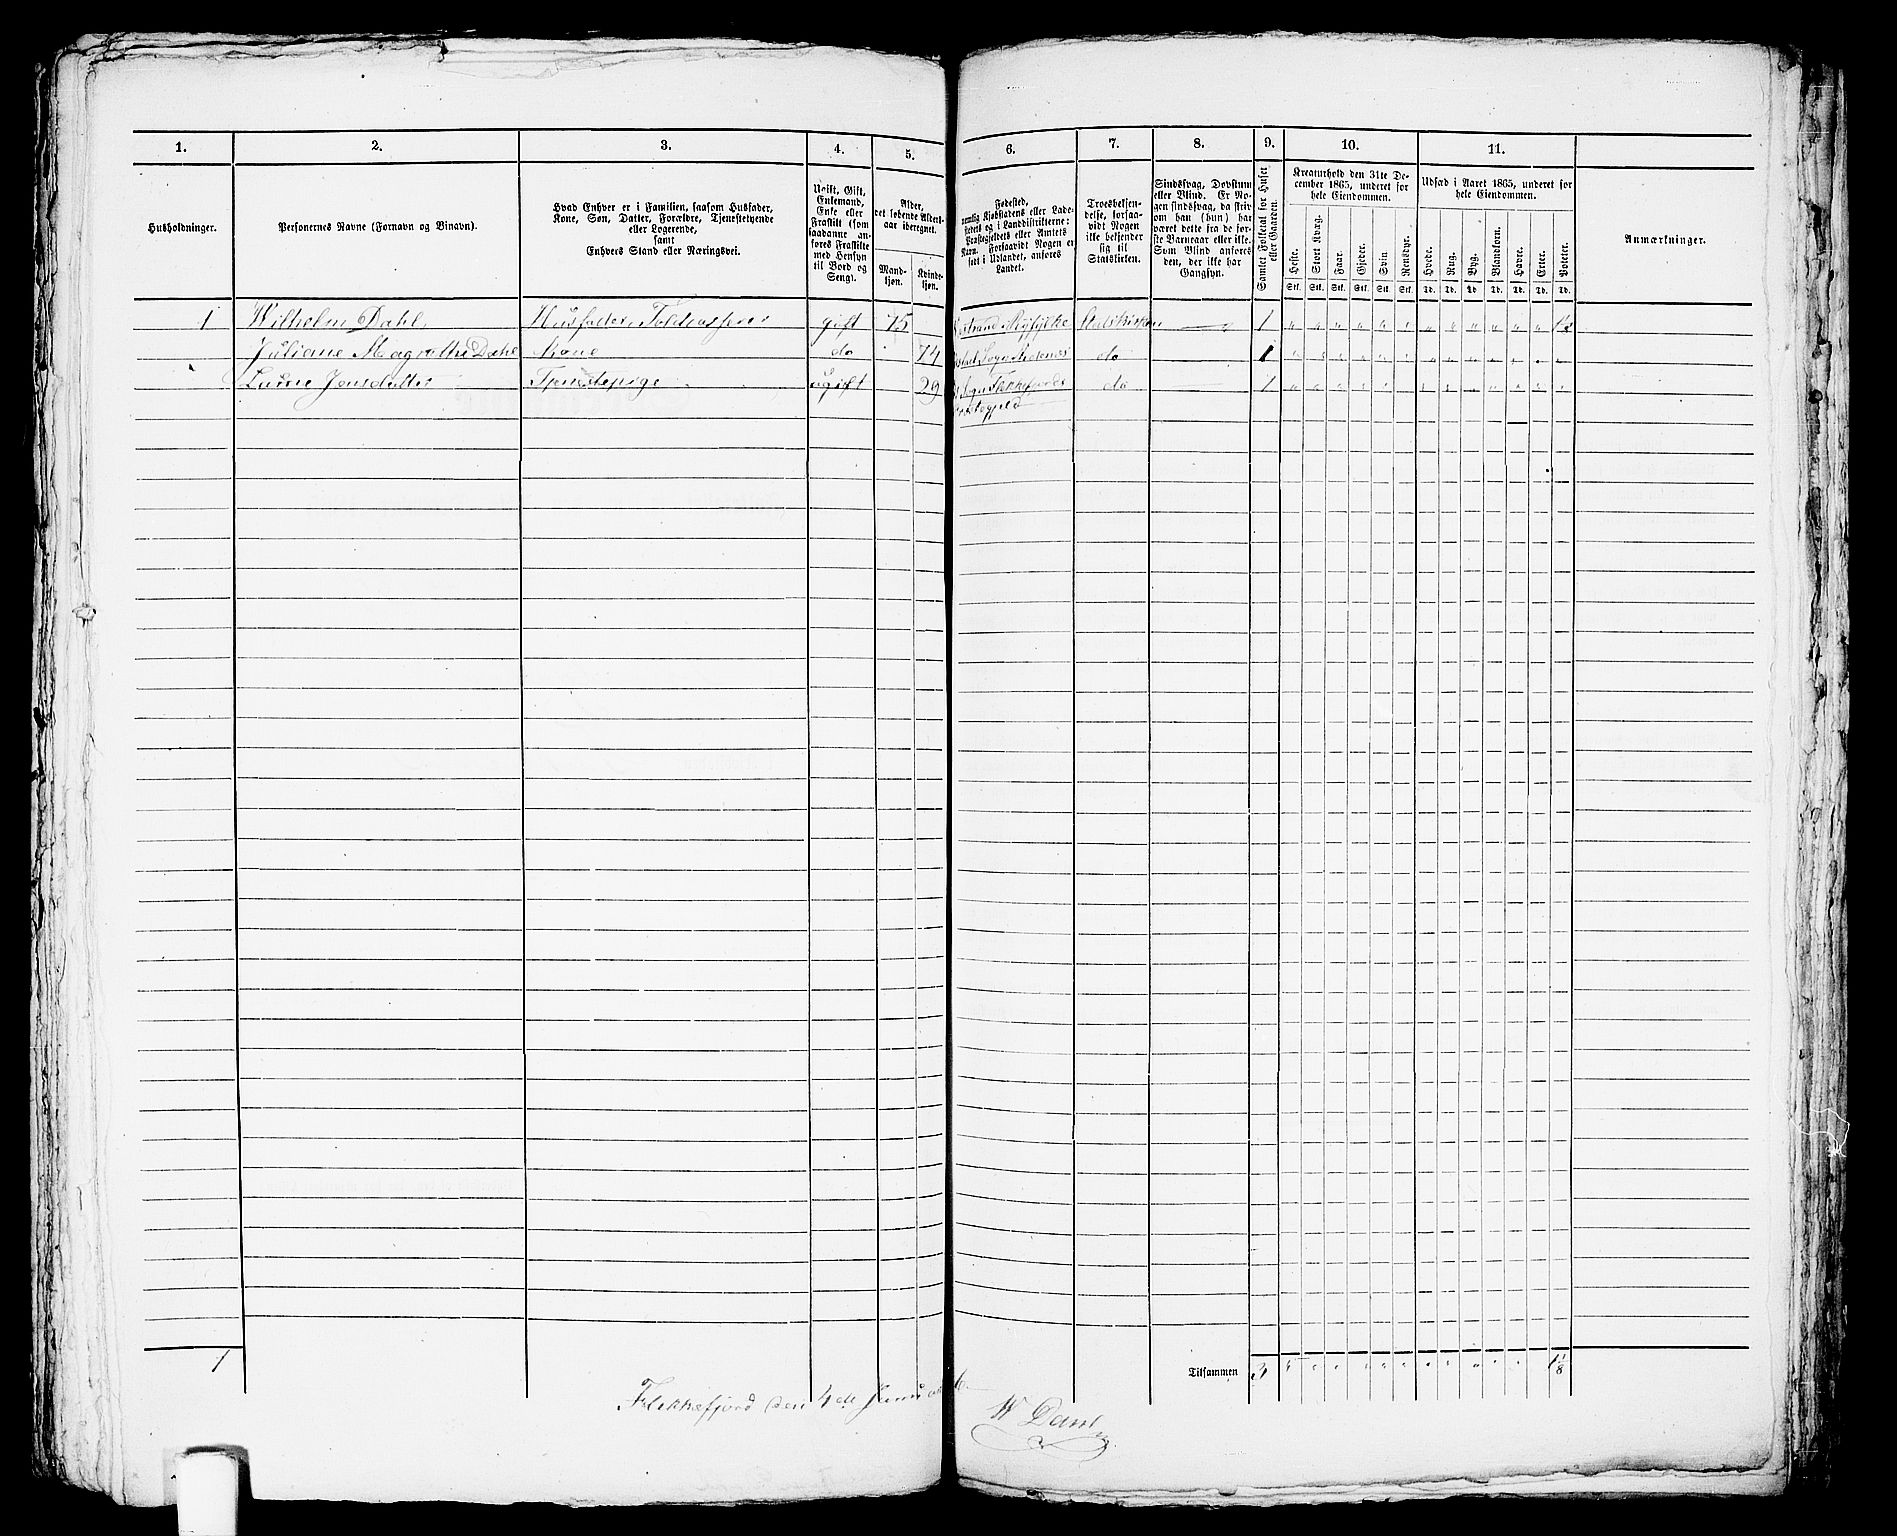 1. 2. 3. 4. 5. 6. 7. 8. 9. 10. 11.
Husholdninger.
Personernes Navne (Fornavn og Binavn).
Hvad Enhver er i Familien, saasom Husfader,
Kone, Søn, Datter, Forældre, Tjenestetyende
eller Logerende,
samt
Enhvers Stand eller Næringsvei.
Ugift, Gift,
Enkemand,
Enke eller
Fraskilt (som
saadanne an-
føres Fraskilte
med Hensyn
til Bord og
Seng).
Alder,
det løbende Alders-
aar iberegnet.
Mand-
kjøn.
Kvinde-
kjøn.
Fødested,
nemlig Kjøbstadens eller Lade-
stedets og i Landdistrikterne:
Præstegjeldets eller Amtets
Navn. Forsaavidt Nogen er
født i Udlandet, anføres
Landet.
Troesbekjen-
delse, forsaa-
vidt Nogen
ikke bekjender
sig til
Statskirken.
Sindssvag, Døvstum
eller Blind. Er No-
gen sindssvag, da skriv
om han (hun) har
været dette fra de før-
ste Barneaar eller ikke.
Som Blind anføres
den, der ikke har
Gangsyn.
Samlet Folketal for Huset
eller Gaarden.
Kreaturhold den 31te De-
cember 1865, underet for
hele Eiendommen.
Heste. Stort Kvæg. Faar. Gjeder. Svin. Rensdyr.
Stk. Stk. Stk. Stk. Stk. Stk.
Udsæd i Aaret 1865, underet for
hele Eiendommen.
Hvede. Rug. Byg. Blandkorn. Havre. Erter. Poteter.
Td. Td. Td. Td. Td. Td. Td.
Anmærkninger.
1 Wilhelm Dahl Husfader, Toldkasserer gift 75 Ryfylke Statskirken 1
Juliane Magrethe Dahl Kone do 74 do 1
Jensdatter Tjenestepige ugift 29 Sogn Flekkefjords do 1
Præstegjeld
1 Tilsammen 3 1 1/8
Flekkefjord den 4de Januar
W Dahl